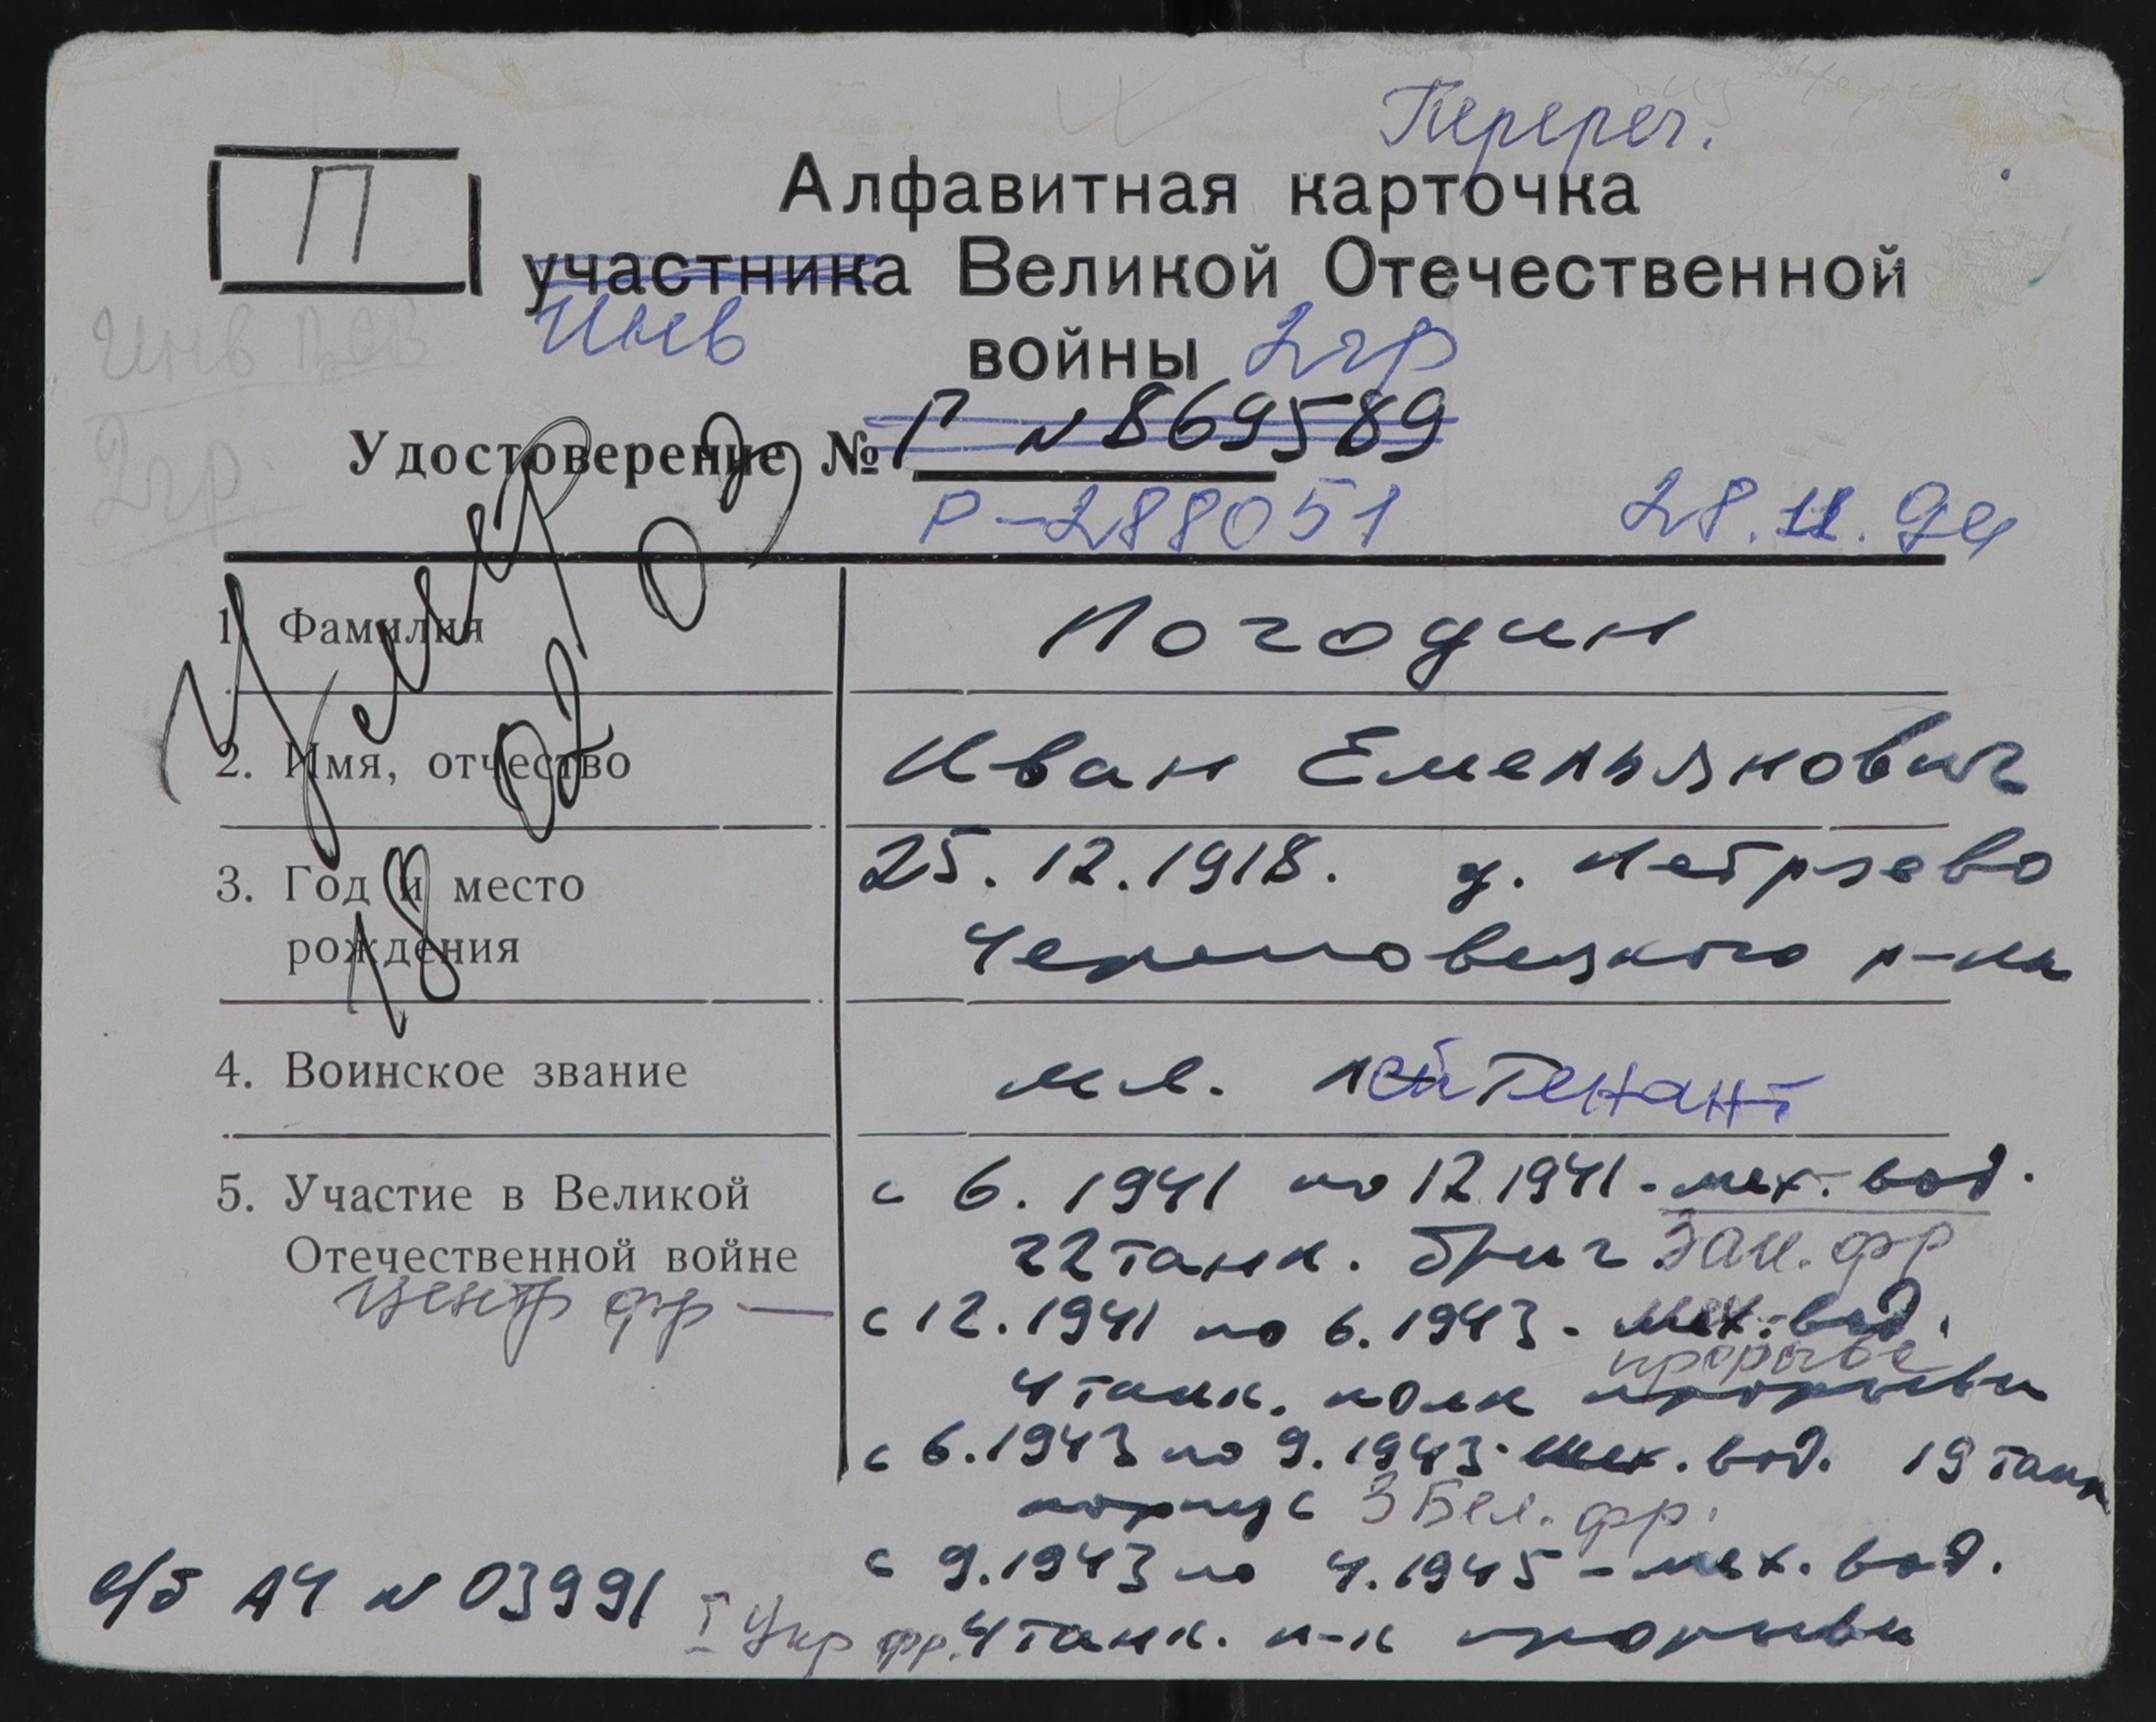 Перерег.
П
Алфавитная карточка
участника Великой Отечественной
Инв
войны 2 гр
Инв ВОВ
2 гр.
Удостоверение № Г № 869589
Р-288051 28.11.94
Умер 18.02.
1. Фамилия Погодин
2. Имя, отчество Иван Емельянович
3. Год и место 25.12.1918. д.
рождения Череповецкого р-на
4. Воинское звание мл. лейтенант
5. Участие в Великой с 6.1941 по 12.1941 - мех. вод.
Отечественной войне 22 танк. бриг Зап. фр
Центр фр — с 12.1941 по 6.1943 - мех. вод.
прорыве
4 танк. полк прорыва
с 6.1943 по 9.1943 - мех. вод. 19 танк
корпус 3 Бел. фр.
с 9.1943 по 4.1945 - мех. вод.
в/б АЧ № 03991 I Укр фр. 4 танк. п-к прорыва